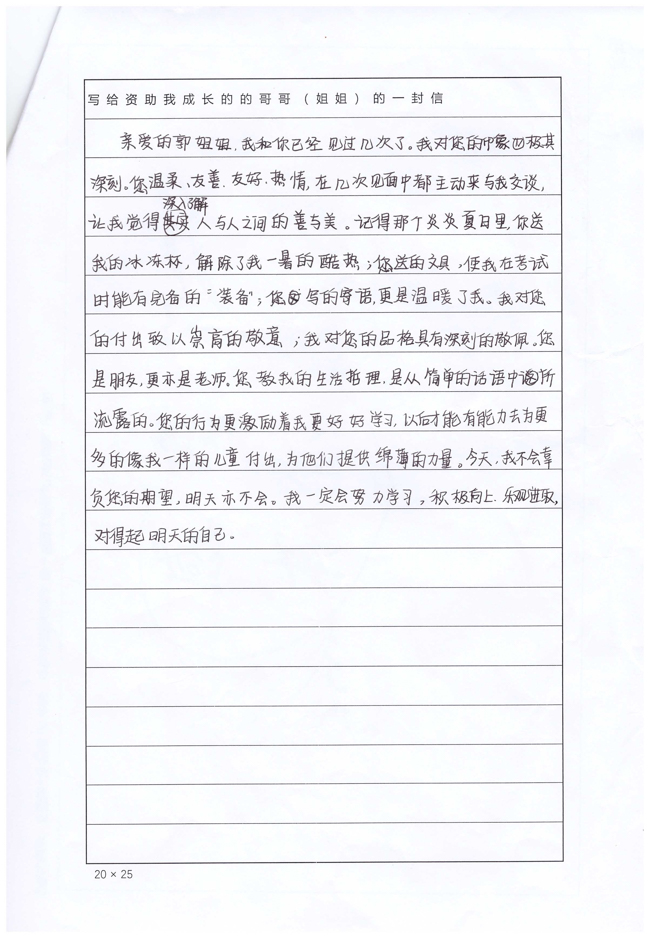 写给资助我成长的的哥哥（姐姐）的一封信
亲爱的郭姐姐，我和你已经见过几次了。我对您的印象极其
深刻。您温柔、友善、友好、热情，在几次见面中都主动来与我交谈，
深入了解
让我觉得人与人之间的善与美。记得那个炎炎夏日里，你送
我的冰冻杯，解除了我一暑的酷热；您送的文具，使我在考试
时能有完备的“装备”；您写的寄语，更是温暖了我。我对您
的付出致以崇高的敬意；我对您的品格具有深刻的敬佩。您
是朋友，更亦是老师。您教我的生活哲理，是从简单的话语中所
流露的。您的行为更激励着我更好好学习，以后才能有能力去为更
多的像我一样的儿童付出，为他们提供绵薄的力量。今天，我不会辜
负您的期望，明天亦不会。我一定会努力学习，积极向上、乐观进取，
对得起明天的自己。
20×25